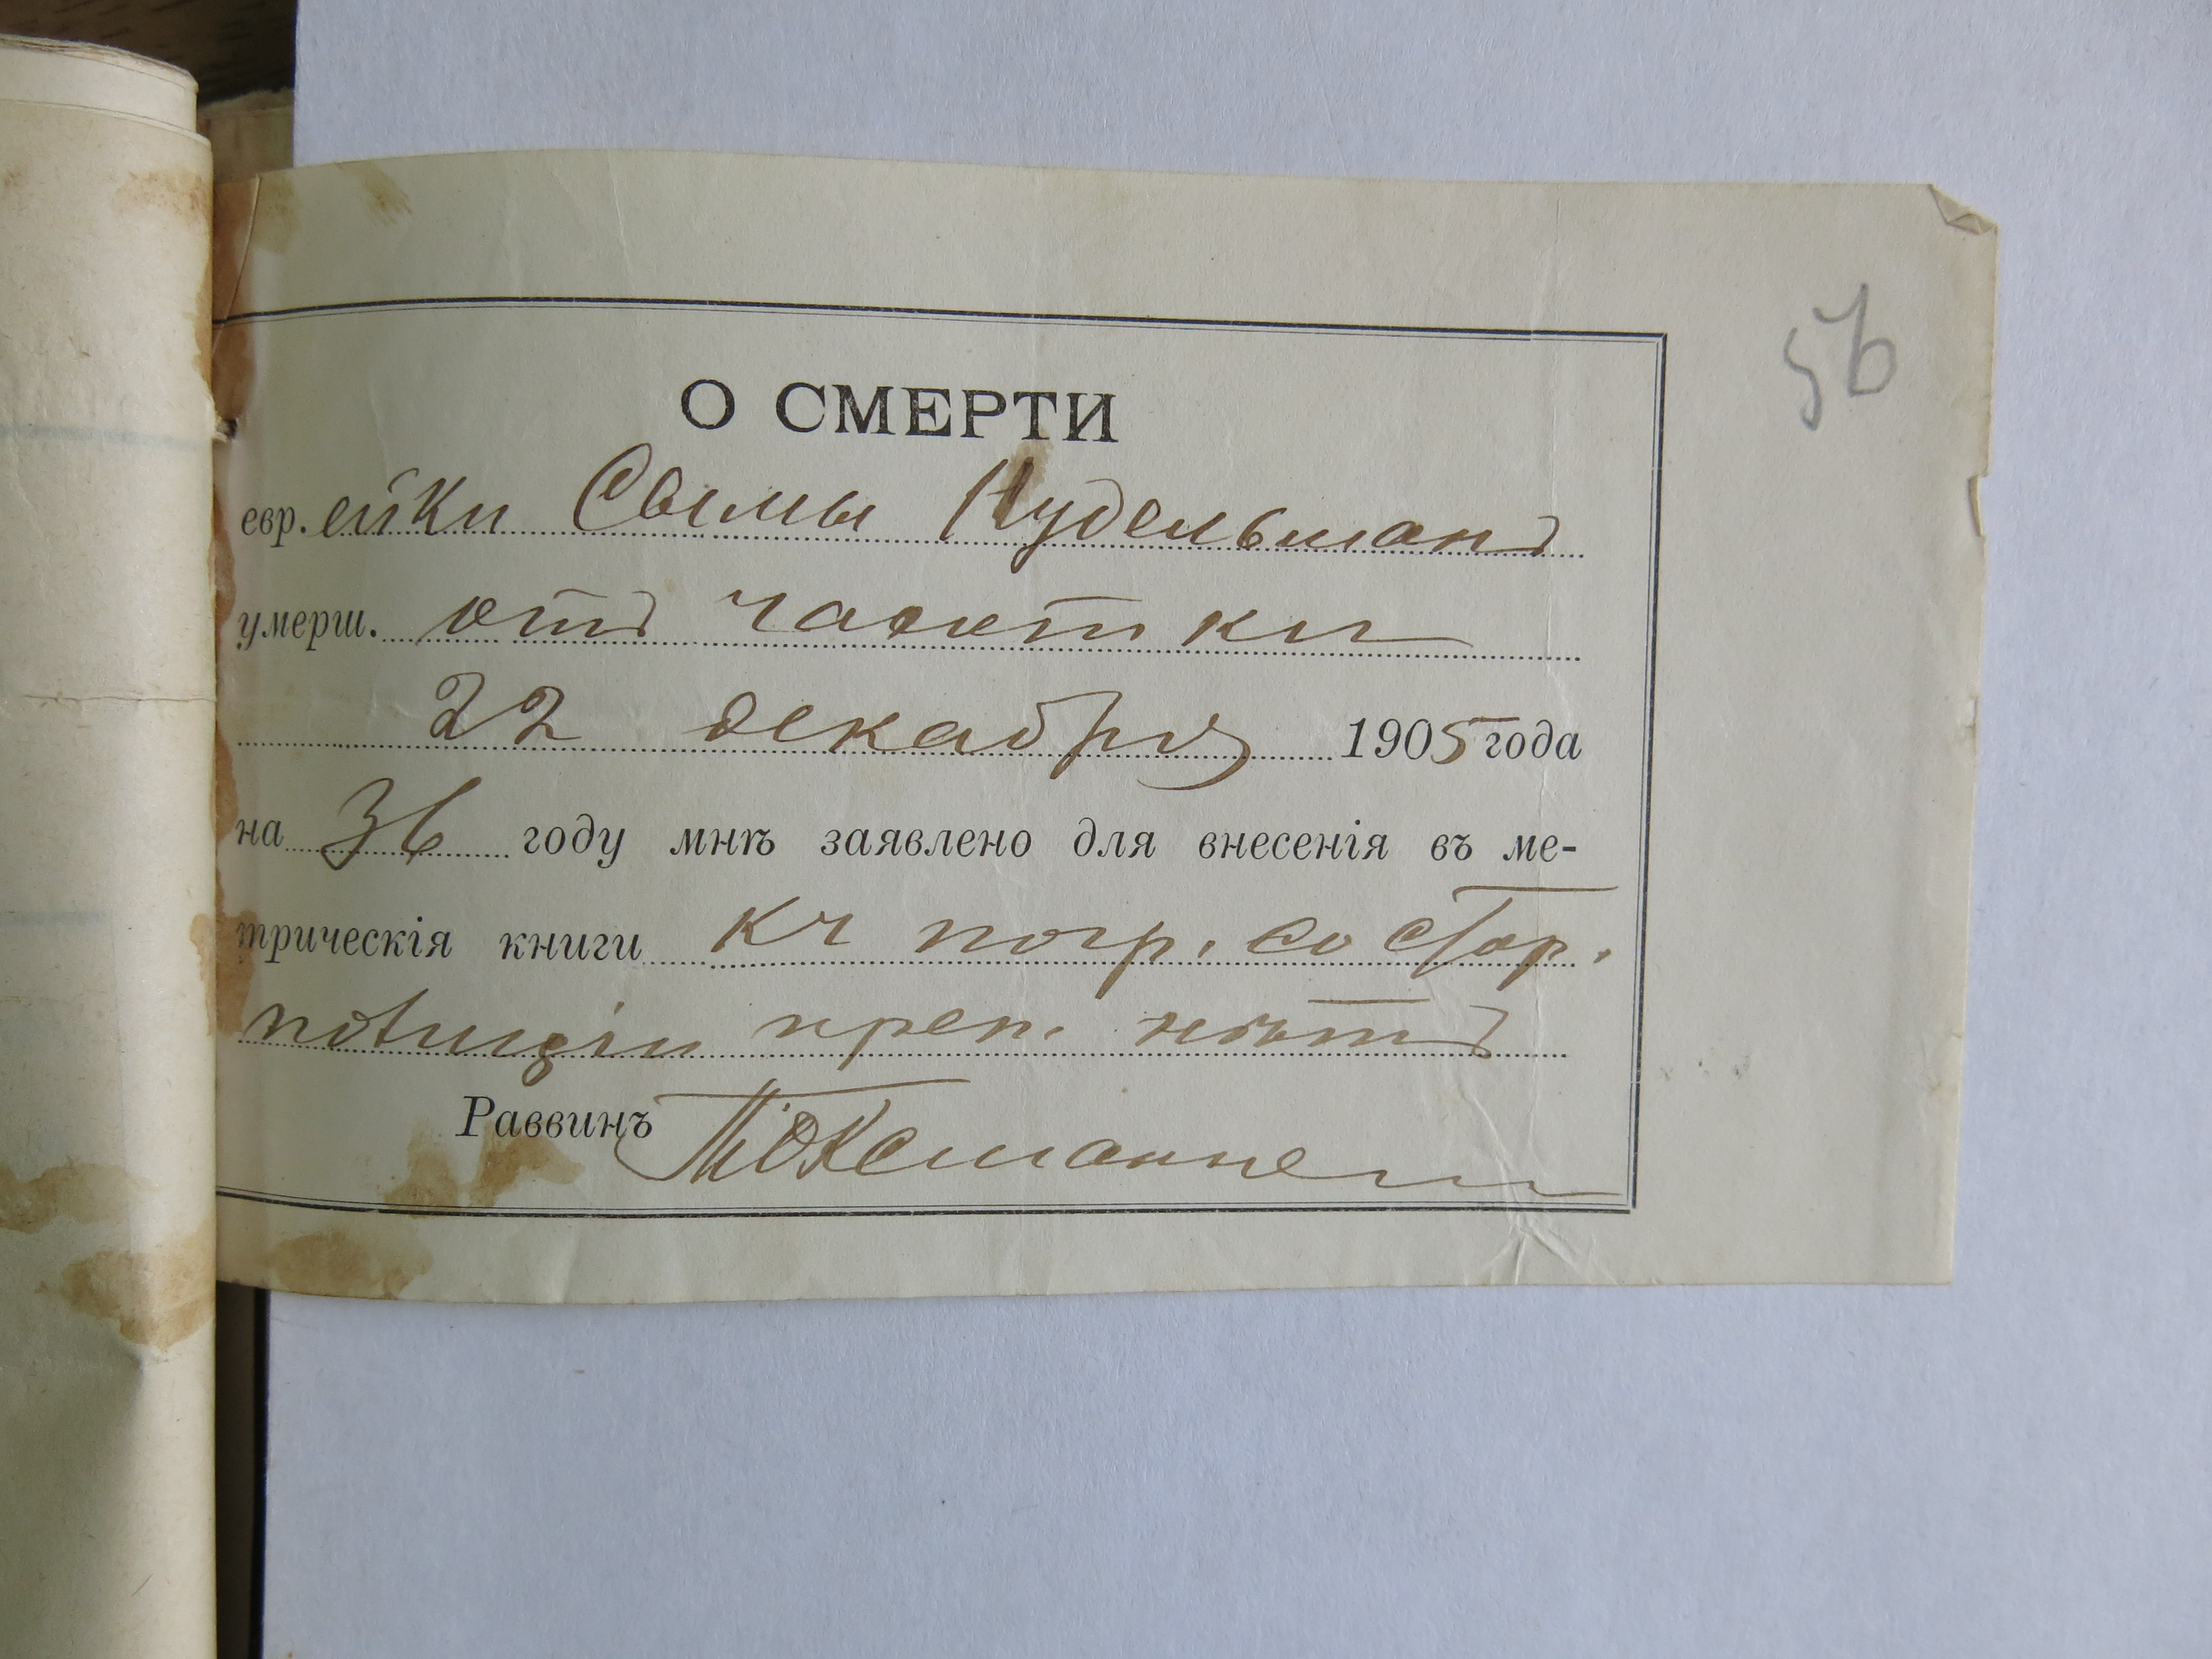 56
О СМЕРТИ
евр.ейки Сымы Нудельманъ
умерш. отъ чахотки
22 декабря 1905 года
на 36 году мнѣ заявлено для внесенія въ ме-
трическія книги къ погр. со стор.
полиціи преп. нѣтъ
Раввинъ